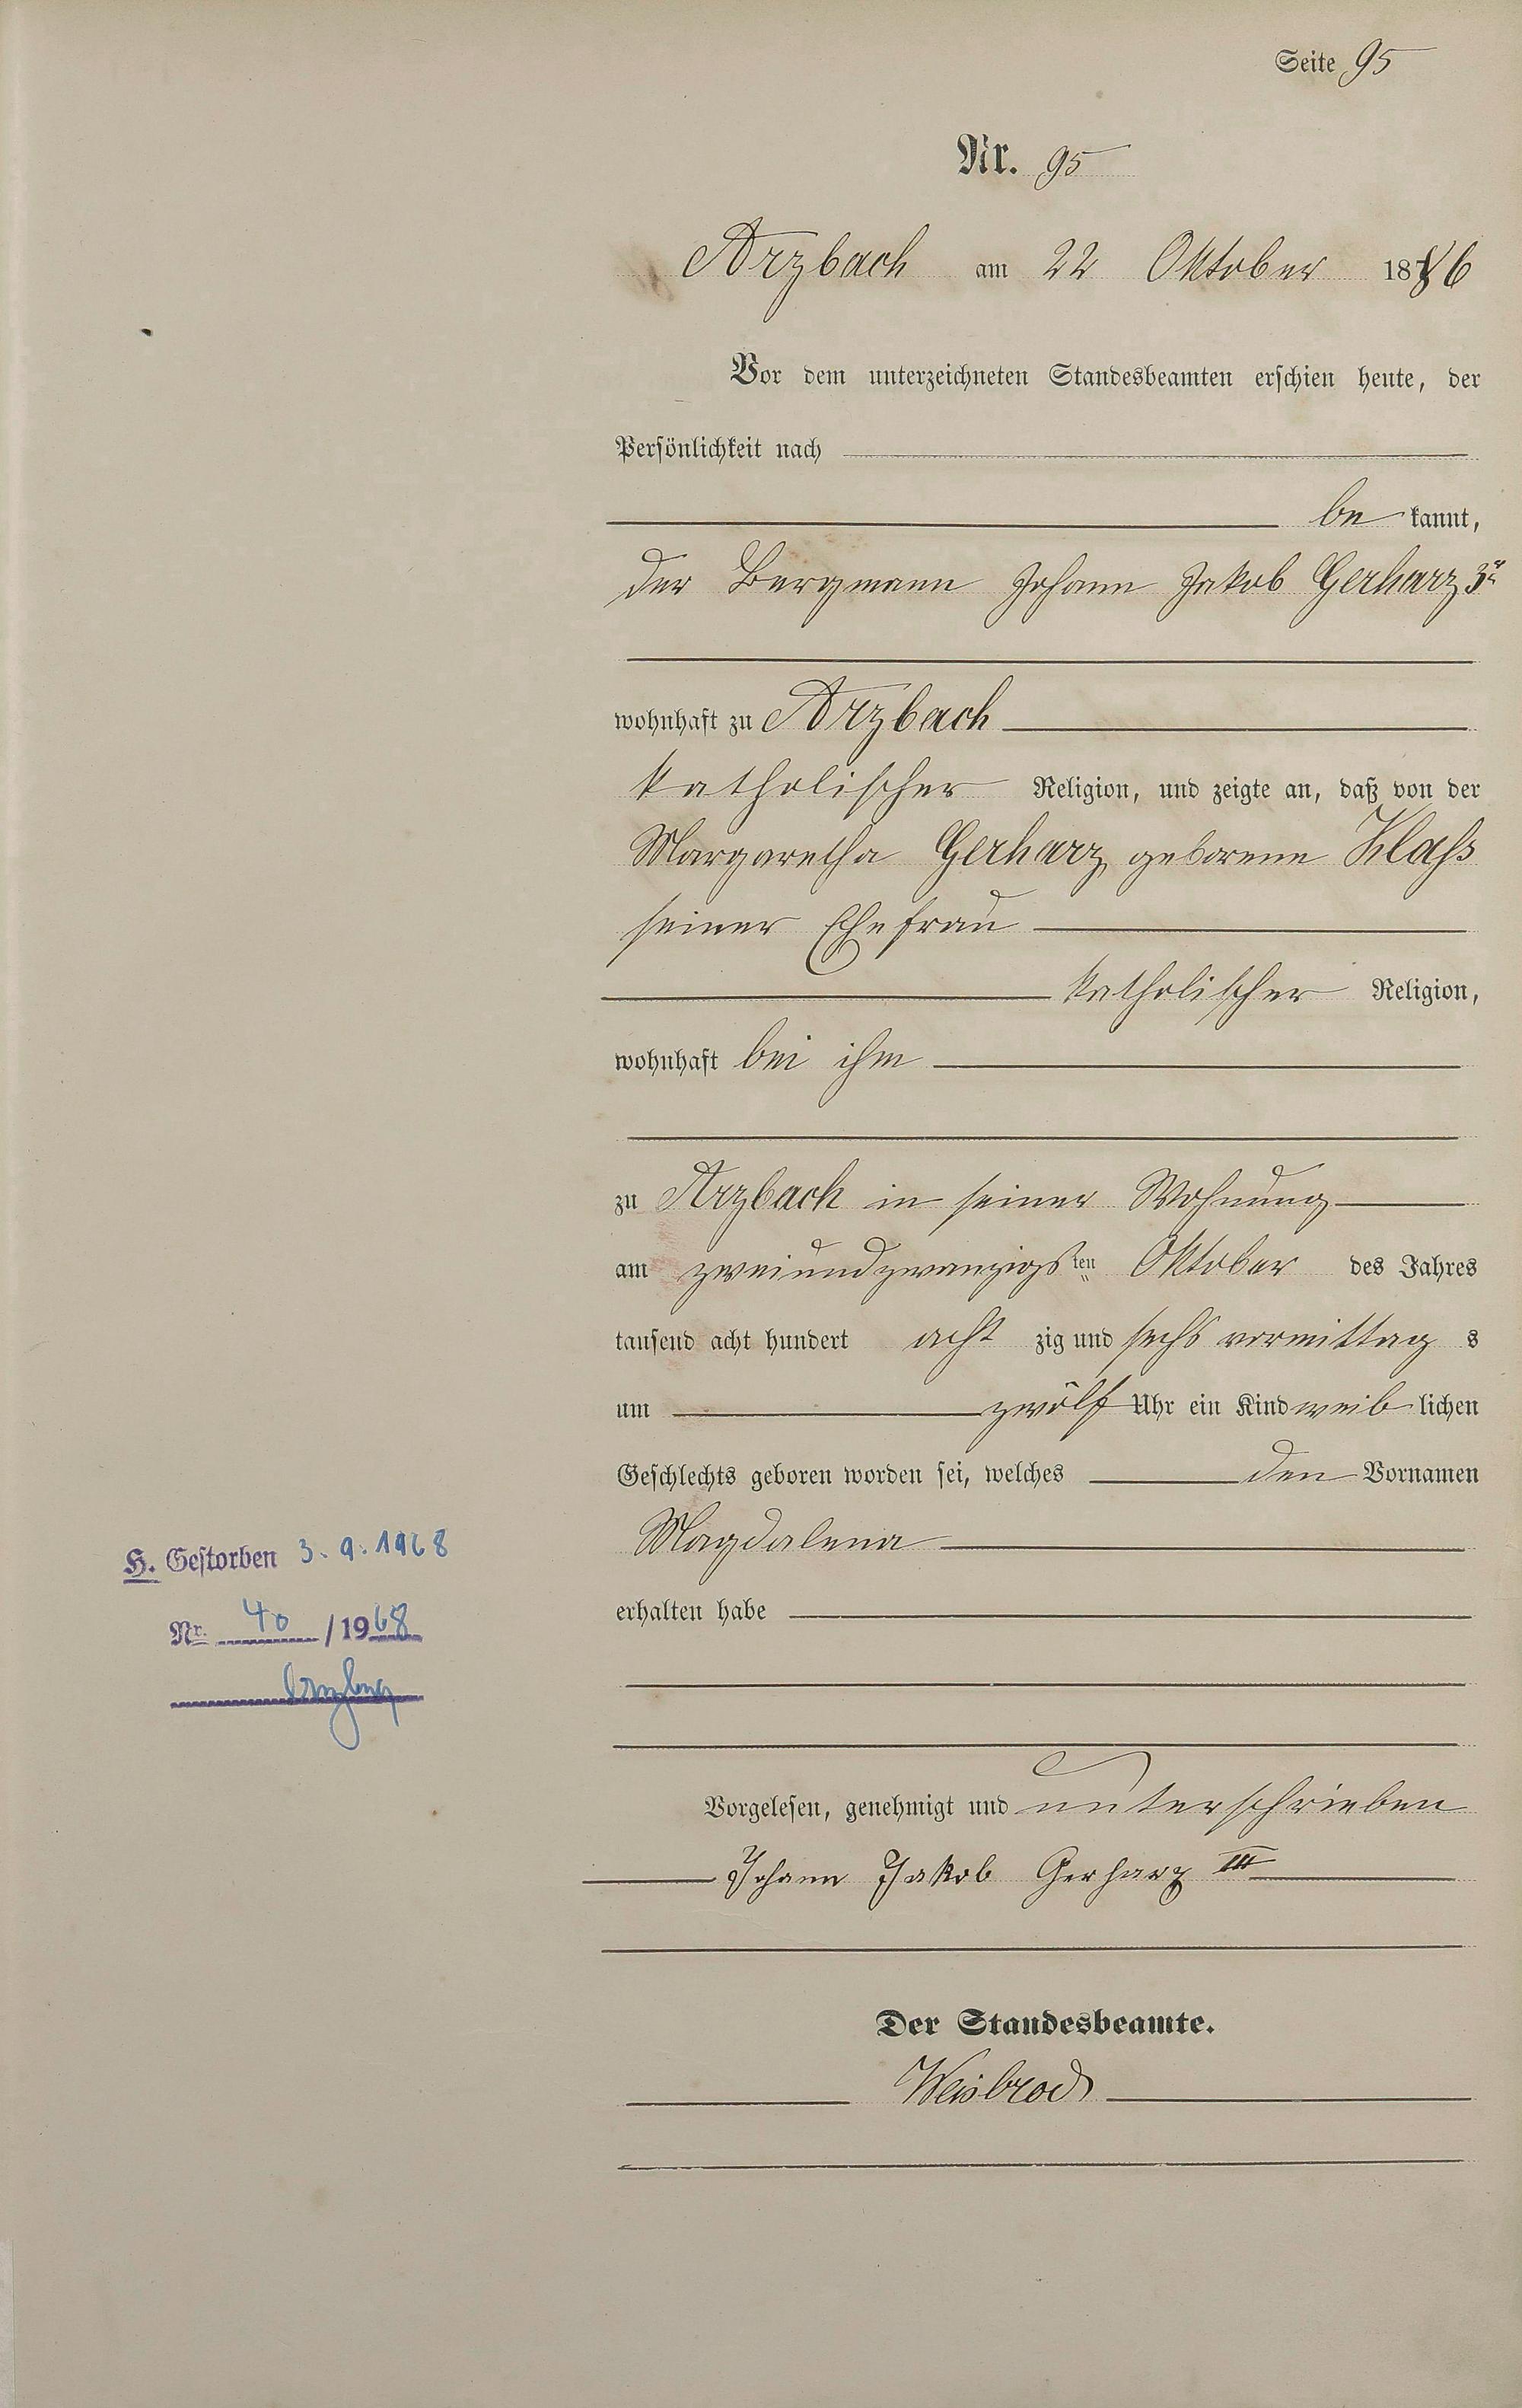 Seite 95
Nr. 95
Arzbach am 22 Oktober 1886
Vor dem unterzeichneten Standesbeamten erschien heute, der
Persönlichkeit nach
be kannt,
der Bergmann Johann Jakob Gerharz 3r
wohnhaft zu Arzbach
katholischer Religion, und zeigte an, daß von der
Margaretha Gerharz geborene Klaß
seiner Ehefrau
katholischer Religion,
wohnhaft bei ihm
zu Arzbach in seiner Wohnung
am zweiundzwanzigsten Oktober des Jahres
tausend acht hundert acht zig und sechs vormittag s
um zwölf Uhr ein Kind weib lichen
Geschlechts geboren worden sei, welches den Vornamen
Magdalena
erhalten habe
H. Gestorben 3.9.1968
Nr. 40/1968
Vorgelesen, genehmigt und unterschrieben
Johann Jakob Gerharz III
Der Standesbeamte.
Weisbrod